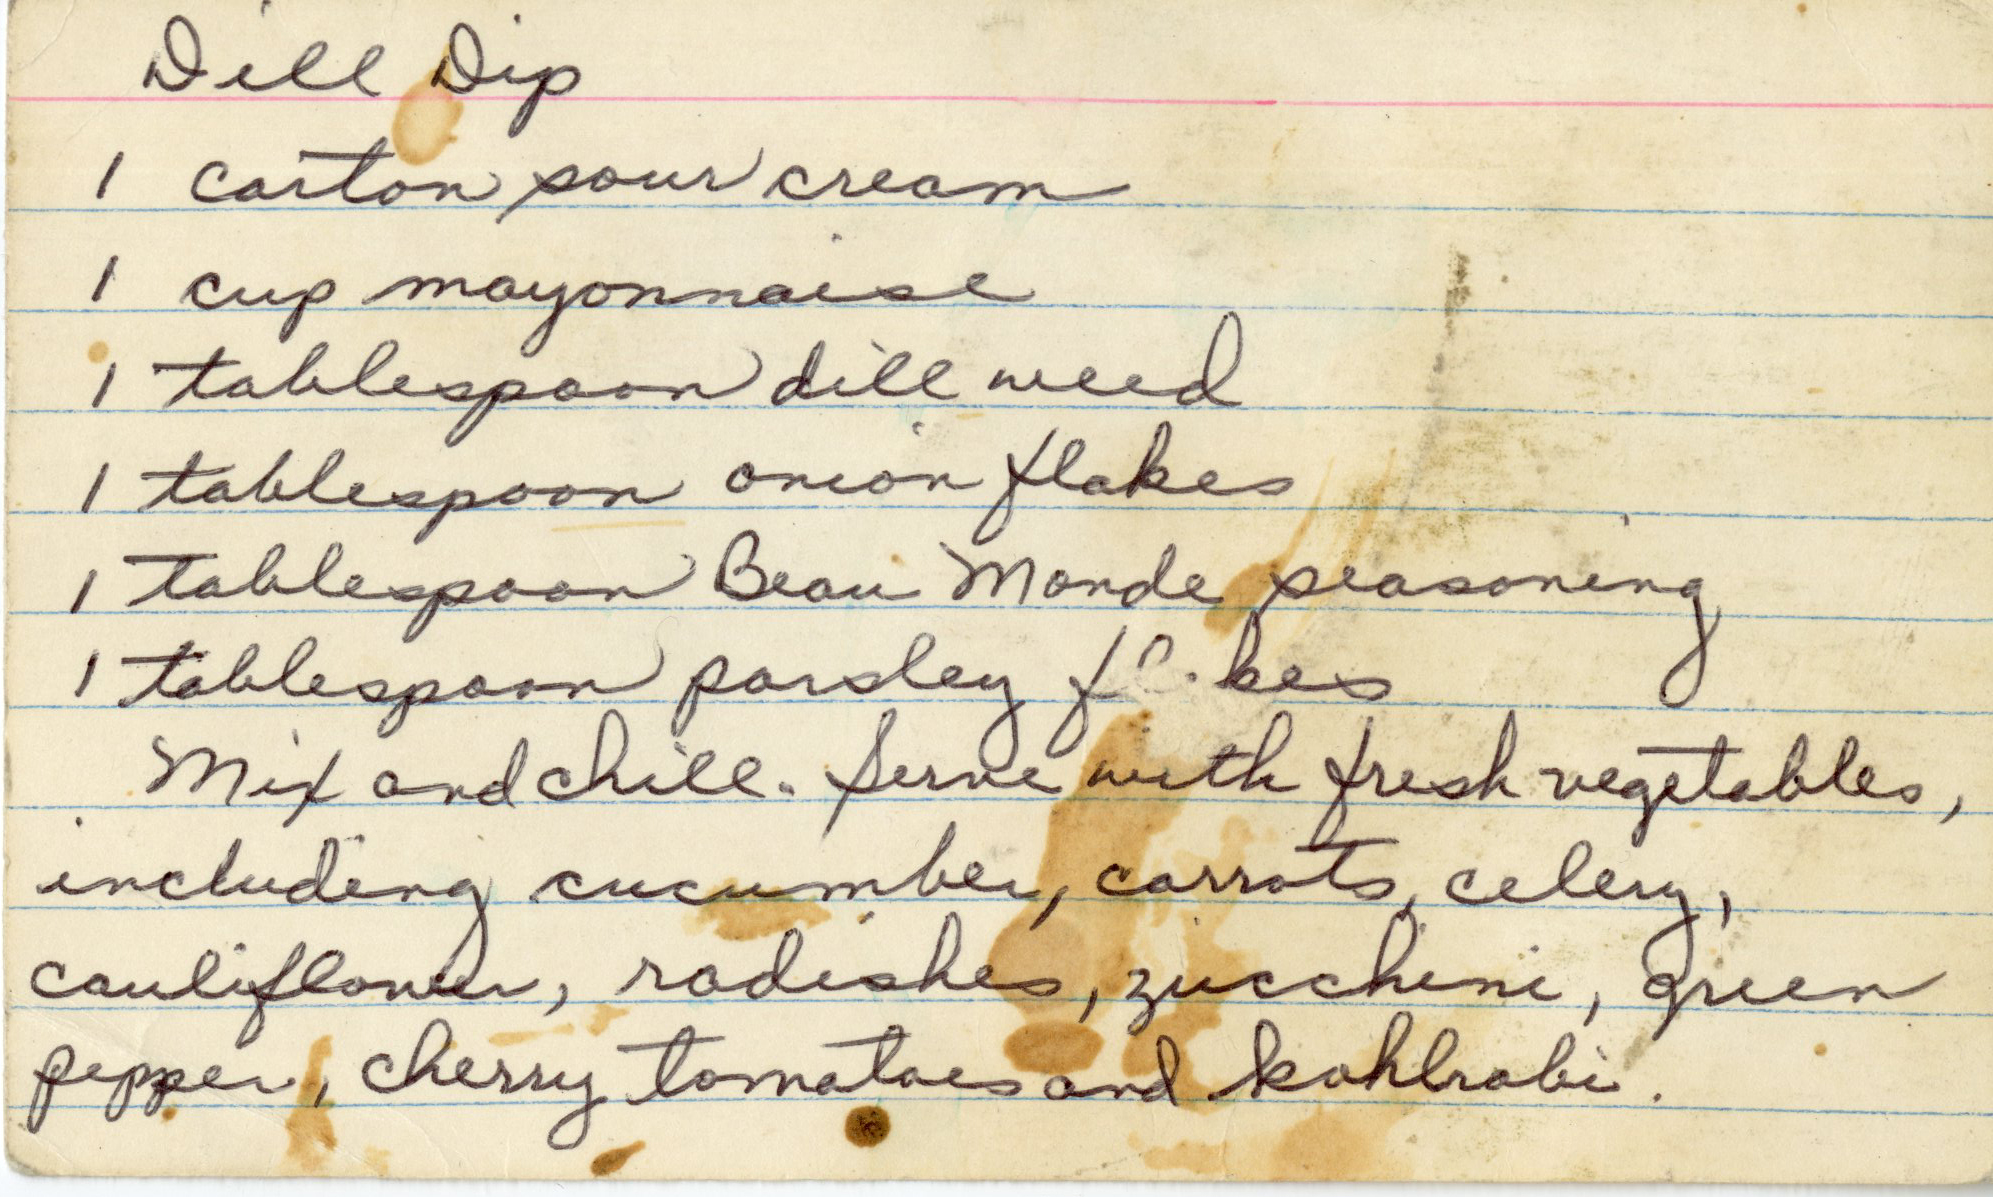 Dill Dip
1 carton sour cream
1 cup mayonnaise
1 tablespoon dill weed
1 tablespoon onion flakes
1 tablespoon Beau Monde seasoning
1 tablespoon parsley flakes
Mix and chill. Serve with fresh vegetables,
including cucumber, carrots, celery,
cauliflower, radishes, zucchini, green
pepper, cherry tomatoes and kohlrabi.